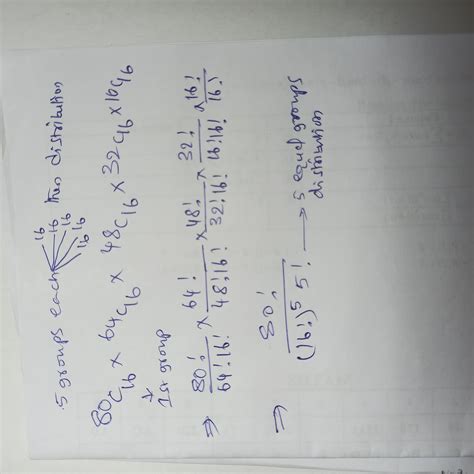 5 groups each 16 16 16 16 16 then distribution
80C16 × 64C16 × 48C16 × 32C16 × 16C16
↓
1st group
⇒ 80!/64!16! × 64!/48!16! × 48!/32!16! × 32!/16!16! × 16!/16!
⇒ 80!/(16!)^5 5! → 5 equal groups
distribution